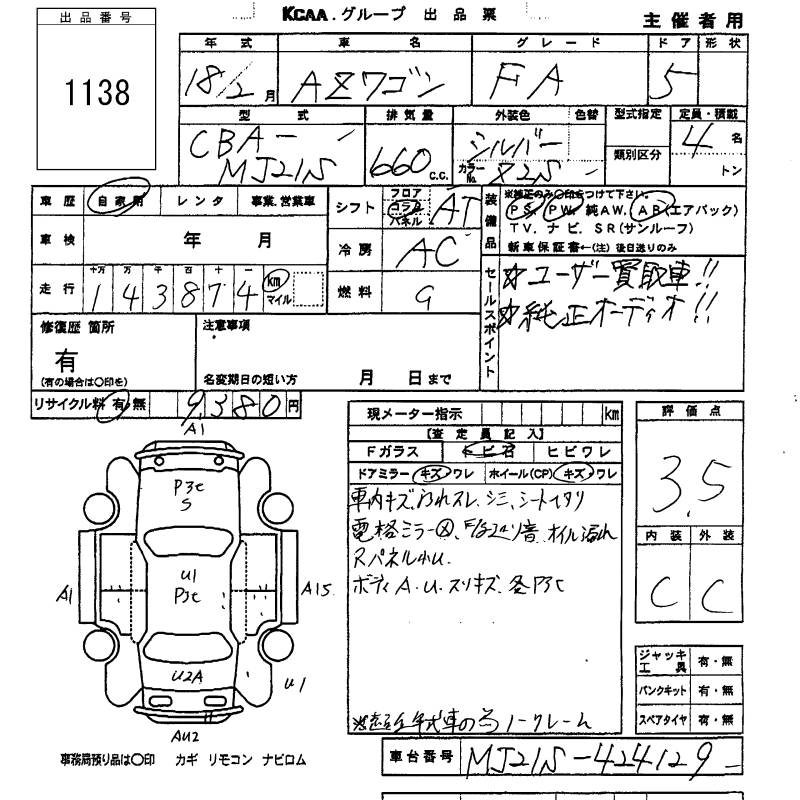 出品番号
1138
KCAA.グループ 出品票
主催者用
年式 車名 グレード ドア 形状
18/2月 AZワゴン FA 5
型式 排気量 外装色 色替 型式指定 定員・積載
CBA-
MJ21S
660c.c.
シルバー
カラーNo. Z2S
類別区分
4名
トン
車歴 自家用 レンタ 事業.営業車
シフト フロア コラム パネル AT
装備品
※純正のみ○印をつけて下さい。
PS. PW. 純AW. AB(エアバック)
TV. ナビ. SR(サンルーフ)
新車保証書←(注) 後日送りのみ
車検 年 月
冷房 AC
走行 十万 万 千 百 十 一 km マイル
143874
燃料 G
セールスポイント
☆ユーザー買取車!!
☆純正オーディオ!!
修復歴 箇所
有
(有の場合は○印を)
注意事項
名変期日の短い方 月 日まで
リサイクル料 有・無 9,380円
現メーター指示 km
【査定員記入】
Fガラス トビ石 ヒビワレ
ドアミラー キズ・ワレ ホイール(CP) キズ・ワレ
車内キズ、汚れスレ、シミ、シートヘタリ
オイル漏れ
スパネル小U.
ボディA.U.スリキズ、各P3C
年式車の為ノークレーム
評価点
3.5
内装 外装
C C
ジャッキ工具 有・無
パンクキット 有・無
スペアタイヤ 有・無
A1
P3C
S
U1
P3C
A1
A15
U2A
U1
AU2
事務局預り品は○印 カギ リモコン ナビロム
車台番号 MJ21S-424129